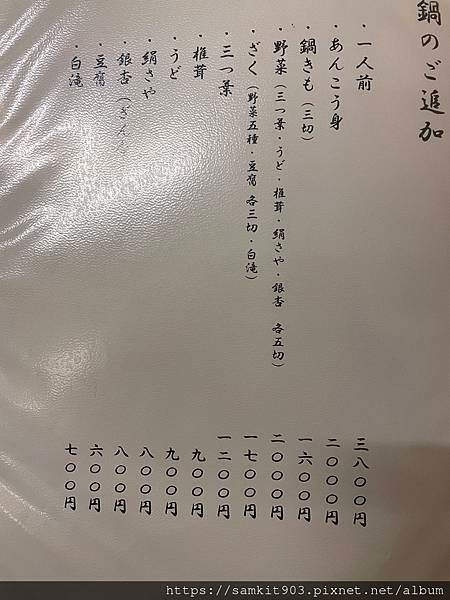 鍋のご追加
・一人前 三八〇〇円
・あんこう身 二〇〇〇円
・鍋きも(三切) 一六〇〇円
・野菜(三つ葉・うど・椎茸・絹さや・銀杏 各五切) 二〇〇〇円
・ざく(野菜五種・豆腐 各三切・白滝) 一七〇〇円
・三つ葉 一二〇〇円
・椎茸 九〇〇円
・うど 九〇〇円
・絹さや 八〇〇円
・銀杏(ぎん 八〇〇円
・豆腐 六〇〇円
・白滝 七〇〇円
https://samkit903.pixnet.net/album